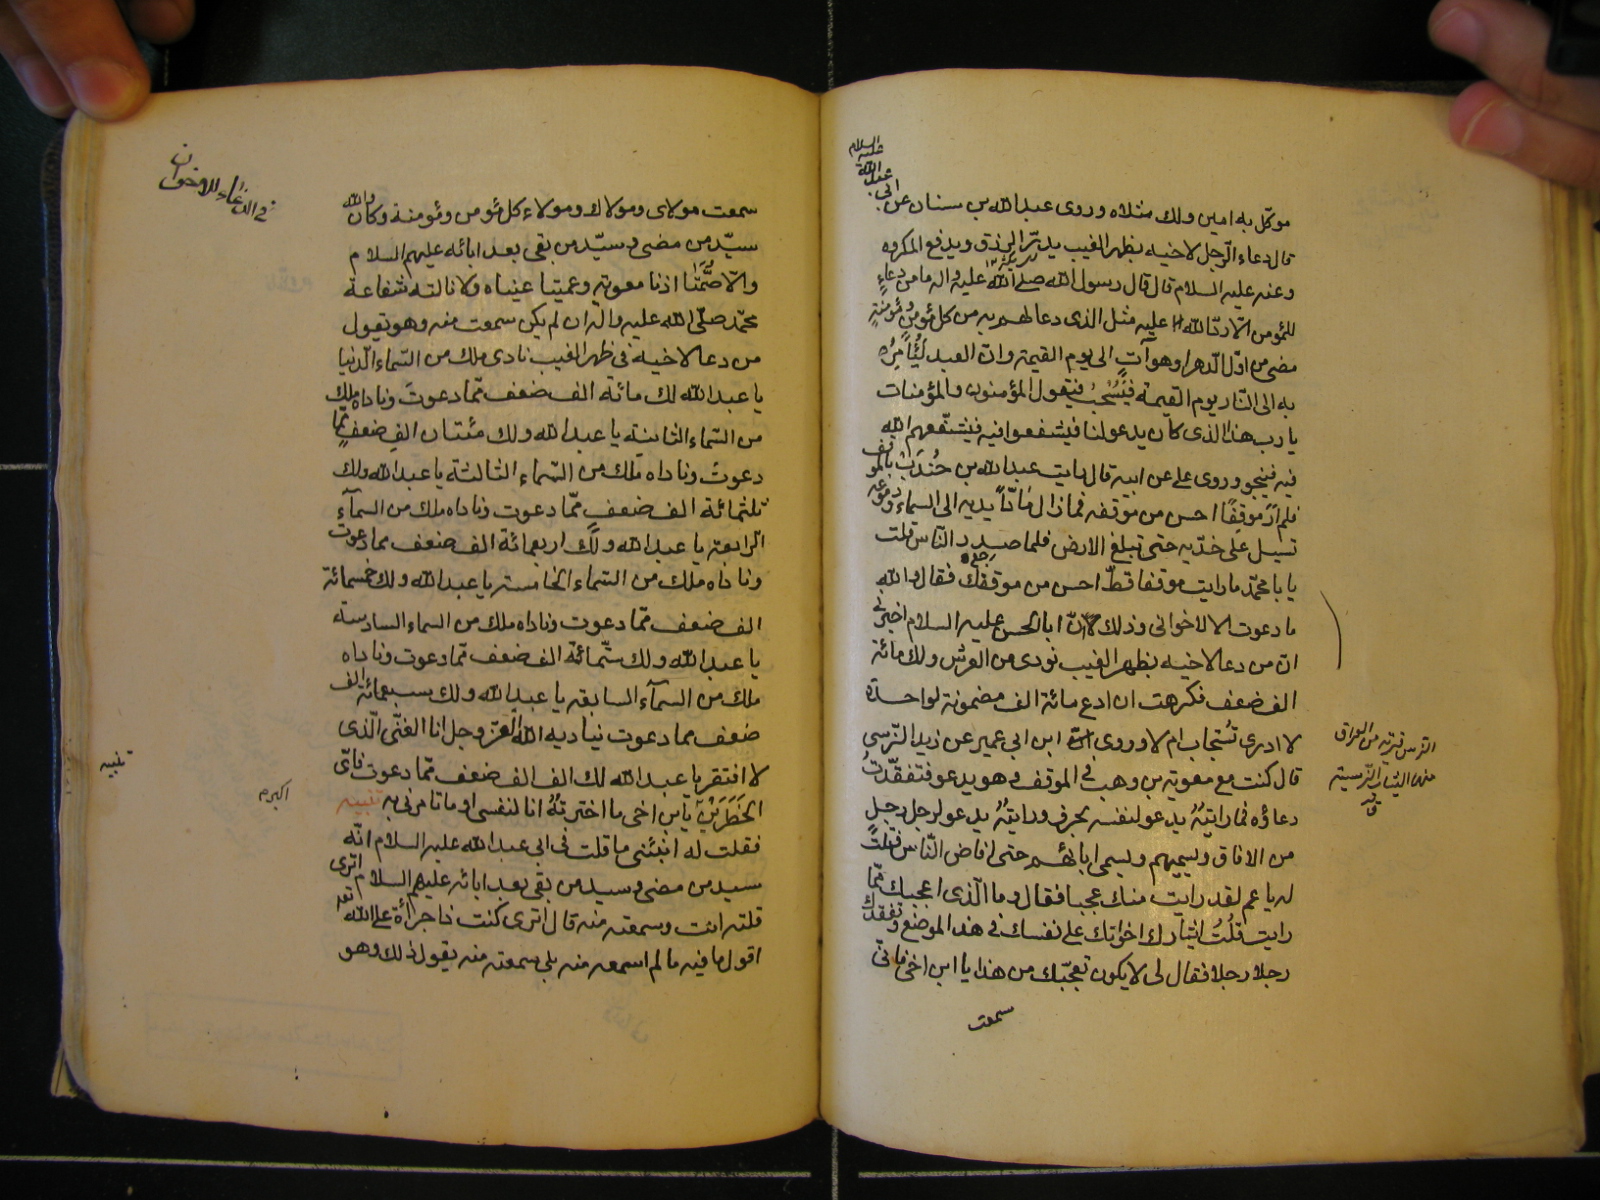 موكّل به امين ولك مثلاه وروى عبدالله بن سنان عن ابى عبدالله عليه السلام
قال دعاء الرّجل لاخيه بظهر الغيب يدرّ الرزق ويدفع المكروه
وعنه عليه السلام قال قال رسول الله صلى الله عليه واله ما من دعاءٍ
للمؤمن الّا ردّ الله عليه مثل الذى دعا لهم به من كل مؤمن ومؤمنةٍ
مضى من اوّل الدّهر او هو آتٍ الى يوم القيمة وانّ العبد ليؤمر
به الى النّار يوم القيمة فيُسْحَبُ فيقول المؤمنون والمؤمنات
يا رب هذا الذى كان يدعو لنا فيشفعوا فيه فيشفّعهم الله
فيه فينجو وروى على عن ابيه قال رايت عبدالله بن جُنْدَبْ بالموقف
فلم ارَ موقفًا احسن من موقفه فما زال مادّاً يديه الى السماء ودموعه
تسيل على خدّيه حتى تبلغ الارض فلما صدر الناس قلت
يا با محمّد ما رايت موقفا قطّ احسن من موقفك فقال والله
ما دعوت الا لاخوانى وذلك لانّ ابا الحسن عليه السلام اخبرنى
انّ من دعا لاخيه بظهر الغيب نودى من العرش ولك مائة
الف ضعف فكرهت ان ادع مائة الف مضمونة لواحدة
لا ادرى تُستجاب ام لا وروى ابن ابى عمير عن زيد النّرسىّ
قال كنت مع معوية بن وهب فى الموقف وهو يدعو فتفقّدتُ
دعاؤه فما رايتهُ يدعو لنفسه بحرف ورايتهُ يدعو لرجلٍ رجلٍ
من الافاق ويسميهم ويسمى اباءهم حتى افاض النّاس فقلت
له يا عم لقد رايت منك عجبا فقال وما الّذى اعجبك ممّا
رايت قلتُ ايثارك اخوانك على نفسك فى هذا الموضع وتفقدك
رجلا رجلا فقال لى لا يكون تعجّبك من هذا يا ابن اخى فانّى
سمعت
النرس قرية من العراق
منها الثياب النّرسية
ق
فى الدّعاء للاخوان
سمعت مولاى ومولاك ومولاء كل مؤمن ومؤمنة وكان والله
سيّد من مضى وسيّد من بقى بعد ابائه عليهم السلام
والّا صُمَّتا اذنا معوية وعميتا عيناه ولا نالته شفاعة
محمّد صلّى الله عليه واله ان لم يكن سمعت منه وهو يقول
من دعا لاخيه فى ظهر الغيب نادى ملك من السّماء الّدنيا
يا عبدالله لك مائة الف ضعف ممّا دعوت وناداه ملك
من السّماء الثانية يا عبدالله ولك مئتان الفِ ضعفٍ ممّا
دعوت وناداه ملك من السّماء الثالثة يا عبدالله ولك
ثلثمائة الف ضعف ممّا دعوت وناداه ملك من السمآء
الرابعة يا عبدالله ولك اربعمائة الف ضعف مما دعوت
وناداه ملك من السّماء الخامسة يا عبدالله ولك خمسمائة
الف ضعف ممّا دعوت وناداه ملك من السماء السادسة
يا عبدالله ولك ستّمائة الف ضعف ممّا دعوت وناداه
ملك من السمآء السابعة يا عبدالله ولك سبعمائة الف
ضعف مما دعوت ثم يناديه الله عز وجل انا الغنّى الّذى
لا افتقر يا عبدالله لك الف الف ضعف ممّا دعوت فاىّ
الخَطَرَيْنِ يا بن اخى ما اخترتهُ انا لنفسى او ما تامرنى به تنبيه
فقلت له انبئنى ما قلت فى ابى عبدالله عليه السلام انّه
سيد من مضى وسيد من بقى بعد ابائه عليهم السلام اترى
قلته انت وسمعته منه قال اترى كنت ذا جرأة على الله
اقول ما فيه ما لم اسمعه منه بلى سمعته منه يقول ذلك وهو
اكبرم
تنبيه